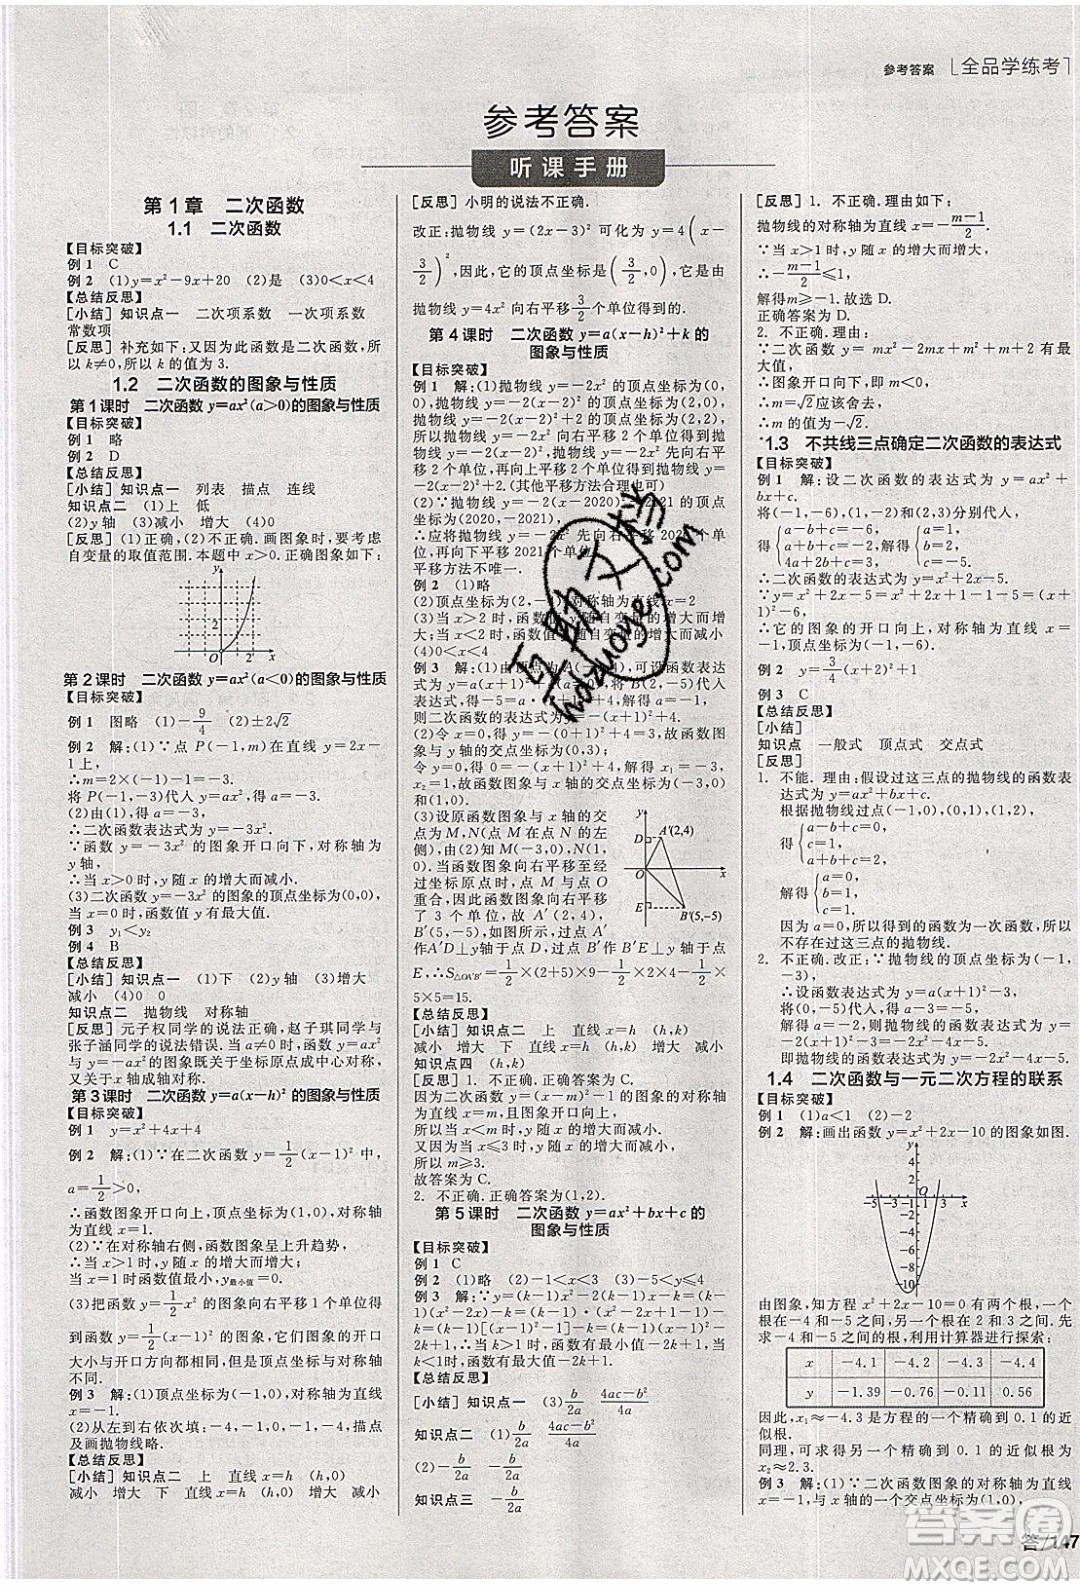 参考答案 [全品学练考]
参考答案
听课手册
第1章 二次函数
1.1 二次函数
【目标突破】
例1 C
例2 (1)y=x²-9x+20 (2)是 (3)0<x<4
【总结反思】
[小结] 知识点一 二次项系数 一次项系数
常数项
[反思] 补充如下:又因为此函数是二次函数,所
以k≠0,所以k的值为3.
1.2 二次函数的图象与性质
第1课时 二次函数y=ax²(a>0)的图象与性质
【目标突破】
例1 略
例2 D
【总结反思】
[小结] 知识点一 列表 描点 连线
知识点二 (1)上 低
(2)y轴 (3)减小 增大 (4)0
[反思] (1)不正确 (2)不正确.画图象时,要考虑
自变量的取值范围.本题中x>0.正确图象如下:
第2课时 二次函数y=ax²(a<0)的图象与性质
【目标突破】
例1 图略 (1)-9/4 (2)±2√2
例2 解:(1)∵点P(-1,m)在函数y=2x-
1上,
∴m=2×(-1)-1=-3.
将P(-1,-3)代入y=ax²,得a=-3.
(2)由(1),得a=-3,
∴二次函数表达式为y=-3x².
∵函数y=-3x²的图象开口向下,对称轴为
y轴,
∴当x<0时,y随x的增大而增大.
(3)二次函数y=-3x²的图象的顶点坐标为(0,0),
当x=0时,函数有最大值0.
例3 y₁<y₂
例4 B
【总结反思】
[小结] 知识点一 (1)下 (2)y轴 (3)增大
减小 (4)0 0
知识点二 抛物线 对称轴
[反思] 元子权同学的说法正确,赵子琪同学与
张子涵同学的说法错误.当a≠0时,函数y=ax²
与y=-ax²的图象既关于坐标原点成中心对称,
又关于x轴成轴对称.
第3课时 二次函数y=a(x-h)²的图象与性质
【目标突破】
例1 y=x²+4x+4
例2 解:(1)∵在二次函数y=1/2(x-1)²中,
a=1/2>0,
∴函数图象开口向上,顶点坐标为(1,0),对称轴
为直线x=1.
(2)∵在对称轴右侧,函数图象呈上升趋势,
∴当x>1时,y随x的增大而增大;
当x=1时函数值最小,y最小值=0.
(3)把函数y=1/2x²的图象向右平移1个单位得
到函数y=1/2(x-1)²的图象,它们的图象的开口
大小与开口方向都相同,但对称轴和顶点坐标
不同.
例3 解:(1)顶点坐标为(-1,0),对称轴为直线
x=-1.
(2)从左到右依次填:-4,-1,0,-1,-4,描点
及画抛物线略.
【总结反思】
[小结] 知识点二 上 直线x=h (h,0)
减小 增大 下 直线x=h (h,0) 增大 减小
[反思] 小明的说法不正确.
改正:抛物线y=(2x-3)²可化为y=4(x-
3/2)²,因此,它的顶点坐标是(3/2,0),它是由
抛物线y=4x²向右平移3/2个单位得到的.
第4课时 二次函数y=a(x-h)²+k的
图象与性质
【目标突破】
例1 解:(1)抛物线y=-2x²的顶点坐标为(0,
0),抛物线y=-2(x-2)²的顶点坐标为(2,0),
抛物线y=-2(x-2)²+2的顶点坐标为(2,2),
所以抛物线y=-2(x-2)²+2是由抛物线
y=-2x²先向右平移2个单位,再向上平移2个单
位得到的.(其他平移方法合理也可)
(2)∵抛物线y=-2(x-2020)²-2021的顶点
坐标为(2020,-2021),
∴应将抛物线y=-2x²先向右平移2020个单
位,再向下平移2021个单位.
平移方法不唯一.
例2 (1)略
(2)顶点坐标为(2,-1),对称轴为直线x=2
(3)当x>2时,函数值y随自变量的增大而增
大;当x<2时,函数值y随自变量的增大而减小
(4)(1,0),(3,0)
例3 解:(1)由顶点为A(-1,4),可设函数表达
式为y=a(x+1)²+4(a≠0),将B(2,-5)代
入,得-5=a(2+1)²+4,解得a=-1,
则二次函数的表达式为y=-(x+1)²+4.
(2)令x=0,得y=-(0+1)²+4=3,故函数图
象与y轴的交点坐标为(0,3);
令y=0,得0=-(x+1)²+4,解得x₁=-3,
x₂=1,故函数图象与x轴的交点坐标为(-3,0)
和(1,0).
(3)设原函数图象与x轴的交
点为M,N(点M在点N的左
侧).由(2)知M(-3,0),N(1,
0).当函数图象向右平移至经过
坐标原点时,点M与点O
重合,因此函数图象向右平移
了3个单位,故A′(2,4),
B′(5,-5),如图所示,过点
A′作A′D⊥y轴于点D,过点B′作B′E⊥y轴于点
E,∴S△OA′B′=1/2×(2+5)×9-1/2×2×4-1/2×
5×5=15.
【总结反思】
[小结] 知识点二 上 直线x=h (h,k)
减小 增大 下 直线x=h (h,k) 增大 减小
知识点四 (h,k)
[反思] 1. 不正确.理由如下:
因为二次函数y=(x-m)²-1的二次项系数大
于0,所以函数图象开口向上.
因为函数图象的对称轴为直线x=m,
所以当x<m时,y随x的增大而减小.
又因为当x<3时,y随x的增大而减小,
所以m≥3.
故答案为C.
2. 不正确.正确答案为(1,2).
第5课时 二次函数y=ax²+bx+c的
图象与性质
【目标突破】
例1 C
例2 (1)略 (2)-1<x<3 (3)-5<y≤4
例3 解:∵y=(k-1)x²-2(k-1)x-k=
(k-1)(x²-2x)-k=(k-1)(x²-2x+1-1)-
k=(k-1)[(x-1)²-1]-k=(k-1)(x-1)²-
2k+1,∴当k>1时,函数有最小值-2k+1;当
k<1时,函数有最大值-2k+1.
【总结反思】
[小结] 知识点一 (3)b/2a (4ac-b²)/4a
知识点二 (1)b/2a -b/2a (4ac-b²)/4a
(2)-b/2a -b/2a
知识点三 -b/2a
[反思] 1. 不正确.理由如下:
抛物线的对称轴为直线x=-(m-1)/2.
∵当x>1时,y随x的增大而增大,
∴-(m-1)/2≤1,
解得m≥-1.故选D.
正确答案为D.
2. 不正确.理由:
∵二次函数y=mx²-2mx+m²+m有最
大值,
∴图象开口向下,即m<0.
∴m=√2应该舍去.
∴m的值为-√2.
1.3 不共线三点确定二次函数的表达式
【目标突破】
例1 解:设二次函数的表达式为y=ax²+
bx+c.
将(-1,-6),(1,-2)和(2,3)分别代入,
得{a-b+c=-6, a+b+c=-2, 4a+2b+c=3, 解得{a=1, b=2, c=-5.
∴二次函数的表达式为y=x²+2x-5.
∵y=x²+2x-5=x²+2x+1-1-5=(x+
1)²-6,
∴它的图象的开口向上,对称轴为直线x=-1,
顶点坐标为(-1,-6).
例2 y=3/4(x+2)²+1
例3 C
【总结反思】
[小结]
知识点 一般式 顶点式 交点式
[反思]
1. 不能.理由:假设过这三点的抛物线的函数表
达式为y=ax²+bx+c.
根据抛物线过点(-1,0),(0,1),(1,2),
得{a-b+c=0, c=1, a+b+c=2,
解得{a=0, b=1, c=1.
因为a=0,所以得到的函数不是二次函数,所以
不存在过这三点的抛物线.
2. 不正确.改正:∵抛物线的顶点坐标为(-1,
-3),
∴可设抛物线的函数表达式为y=a(x+1)²-3.
将(0,-5)代入,得-5=a-3,
解得a=-2,则抛物线的函数表达式为y=
-2(x+1)²-3=-2x²-4x-5.
即抛物线的函数表达式为y=-2x²-4x-5.
1.4 二次函数与一元二次方程的联系
【目标突破】
例1 (1)a<1 (2)-2
例2 解:画出函数y=x²+2x-10的图象如图.
由图象,知方程x²+2x-10=0有两个根,一个
在-4和-5之间,另一个在2和3之间.
先求-4和-5之间的根,利用计算器进行探索:
x -4.1 -4.2 -4.3 -4.4
y -1.39 -0.76 -0.11 0.56
因此,x₁≈-4.3是方程的一个精确到0.1的近
似根.
同理,可求得另一个精确到0.1的近似根为
x₂≈2.3.
例3 解:(1)∵二次函数图象的对称轴为直线
x=-1,且图象与x轴的一个交点坐标为(1,0),
答/147
答案圈
MXQE.COM
互助文档
hdzuoye.com